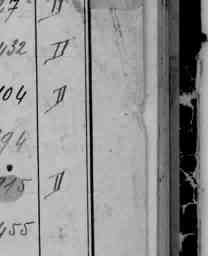 27 II
432 II
104 II
94
715 II
455